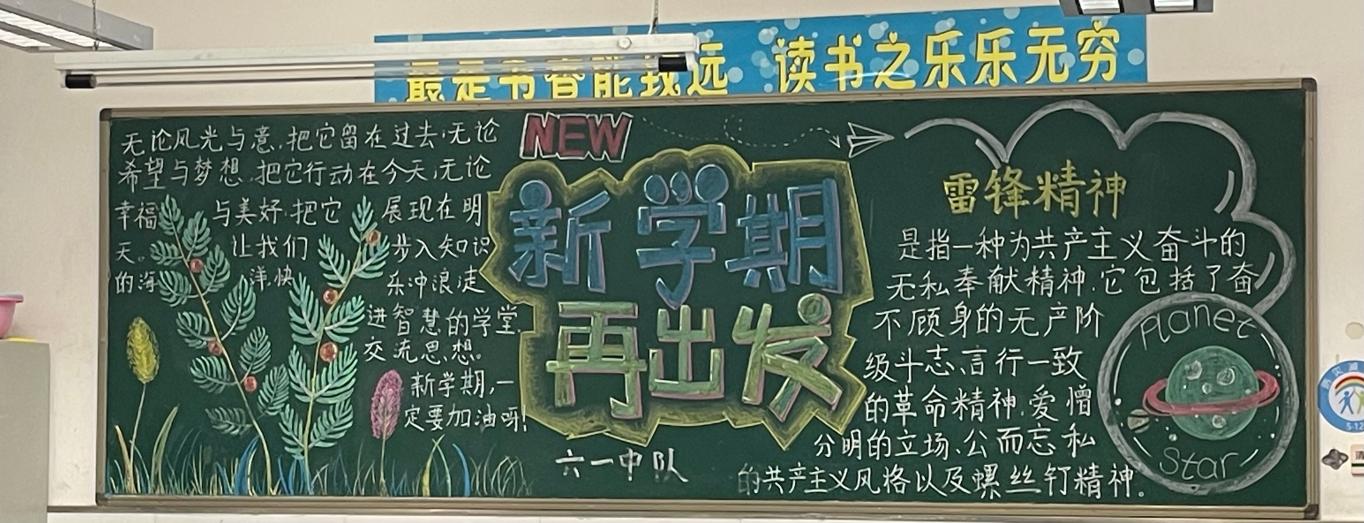 最是书香能致远 读书之乐乐无穷
无论风光与意,把它留在过去,无论
希望与梦想,把它行动在今天,无论
幸福与美好,把它展现在明
天。让我们步入知识
的海洋,快乐冲浪,走
进智慧的学堂,
交流思想。
新学期,一
定要加油呀!
NEW
新学期
再出发
六一中队
雷锋精神
是指一种为共产主义奋斗的
无私奉献精神,它包括了奋
不顾身的无产阶
级斗志、言行一致
的革命精神,爱憎
分明的立场、公而忘私
的共产主义风格以及螺丝钉精神。
Planet
Star
5·12